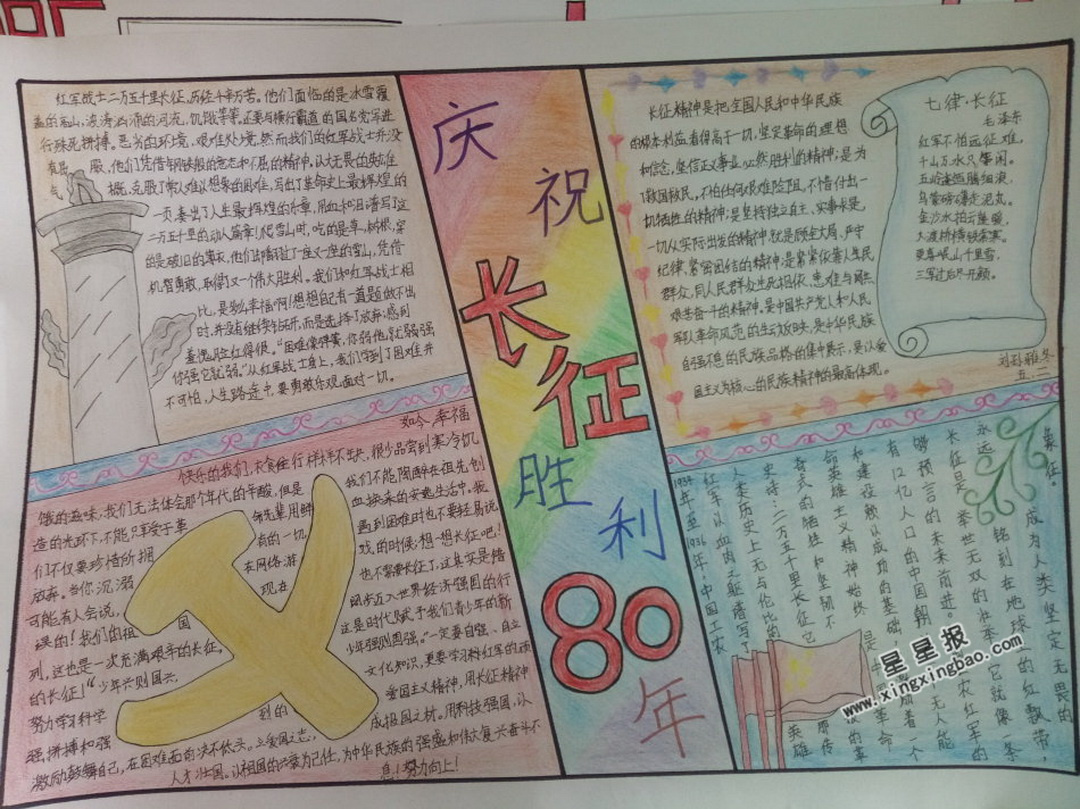 红军战士二万五千里长征,历经千辛万苦。他们面临的是冰雪覆
盖的高山,波涛汹涌的河流,饥饿等等,还要与横行霸道的国名党军进
行殊死拼搏。恶劣的环境,艰难处境,然而我们的红军战士并没
有屈 服,他们凭借钢铁般的意志和不屈的精神,以大无畏的英雄
气 概,克服了常人难以想象的困难,写出了革命史上最辉煌的
一页,奏出了人生最辉煌的乐章,用血和泪谱写了这
二万五千里的动人篇章!爬雪山时,吃的是草,树根,穿
的是破旧的薄衣,他们翻过了一座又一座的雪山,凭借
机智勇敢,取得了一个伟大胜利。我们和红军战士相
比,是多么幸福啊!想想自己有一道题做不出
时,并没有继续钻研,而是选择了放弃;感到
羞愧,脸红得很。“困难像弹簧,你弱他就弱强
你强它就弱。”从红军战士身上,我们学到了困难并
不可怕,人生路途中,要勇敢乐观面对一切。
庆
祝
长
征
胜
利
80
年
长征精神是把全国人民和中华民族
的根本利益看得高于一切,坚定革命的理想
和信念,坚信正义事业必然胜利的精神;是为
了救国救民,不怕任何艰难险阻,不惜付出一
切牺牲的精神;是坚持独立自主、实事求是,
一切从实际出发的精神;就是顾全大局、严守
纪律、紧密团结的精神;是紧紧依靠人民
群众,同人民群众生死相依、患难与
艰苦奋斗的精神。是中国共产党人和人民
军队革命风范的生动反映,是中华民族
自强不息的民族品格的集中展示,是以爱
国主义为核心的民族精神的最高体现。
七律·长征
毛泽东
红军不怕远征难,
千山万水只等闲。
五岭逶迤腾细浪,
乌蒙磅礴走泥丸。
金沙水拍云崖暖,
大渡桥横铁索寒。
更喜岷山千里雪,
三军过后尽开颜。
五、二
如今,幸福
快乐的我们,衣食住行样样不缺,很少品尝到寒冷饥
饿的滋味,我们无法体会那个年代的辛酸,但是 我们不能陶醉在祖先创
造的光环下,不能只享受于革 命先辈用鲜 血换来的安逸生活中。我
们不仅要珍惜所拥 有的一切, 遇到困难时也不要轻易说
放弃。当你沉溺 在网络游 戏的时候;想一想长征吧!
可能有人会说, 现在 也不需要长征了,这其实是错
误的!我们的祖 国 刚步迈入世界经济强国的行
列,这也是一次充满艰辛的长征, 这是时代赋予我们青少年的新
的长征!“少年兴则国兴, 少年强则国强。”一定要自强、自立
努力学习科学 文化知识,更要学习红军的顽
强拼搏和强 爱国主义精神,用长征精神
激励鼓舞自己,在困难面前决不低头。立爱国之志, 到的 成报国之材。用科技强国,以
人才壮国。以祖国的兴衰为己任,为中华民族的强盛和伟大复兴奋斗不
息!努力向上!
1934年至1936年,中国工农
红军以血肉之躯谱写了
人类历史上无与伦比的
史诗:二万五千里长征,它
奇式的牺牲和坚韧不
命英雄主义精神始终
和建设赖以成功的基础
有12亿人口的中国朝
够预言的未来前进。
长征是举世无双的壮举,它就像一条
永远 铭刻在地球上的红飘带,
成为人类坚定无畏的
象征。
英雄
星星报
www.xingxingbao.com